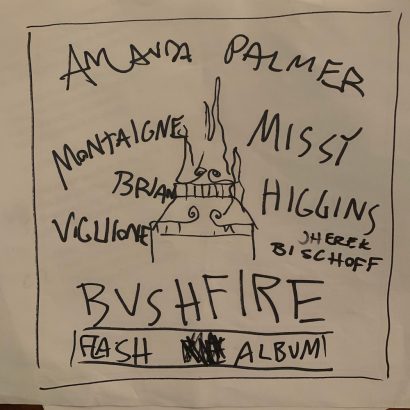 AMANDA PALMER
MONTAIGNE
MISSY
HIGGINS
BRIAN
VIGLIONE
JHEREK
BISCHOFF
BUSHFIRE
FLASH ALBUM